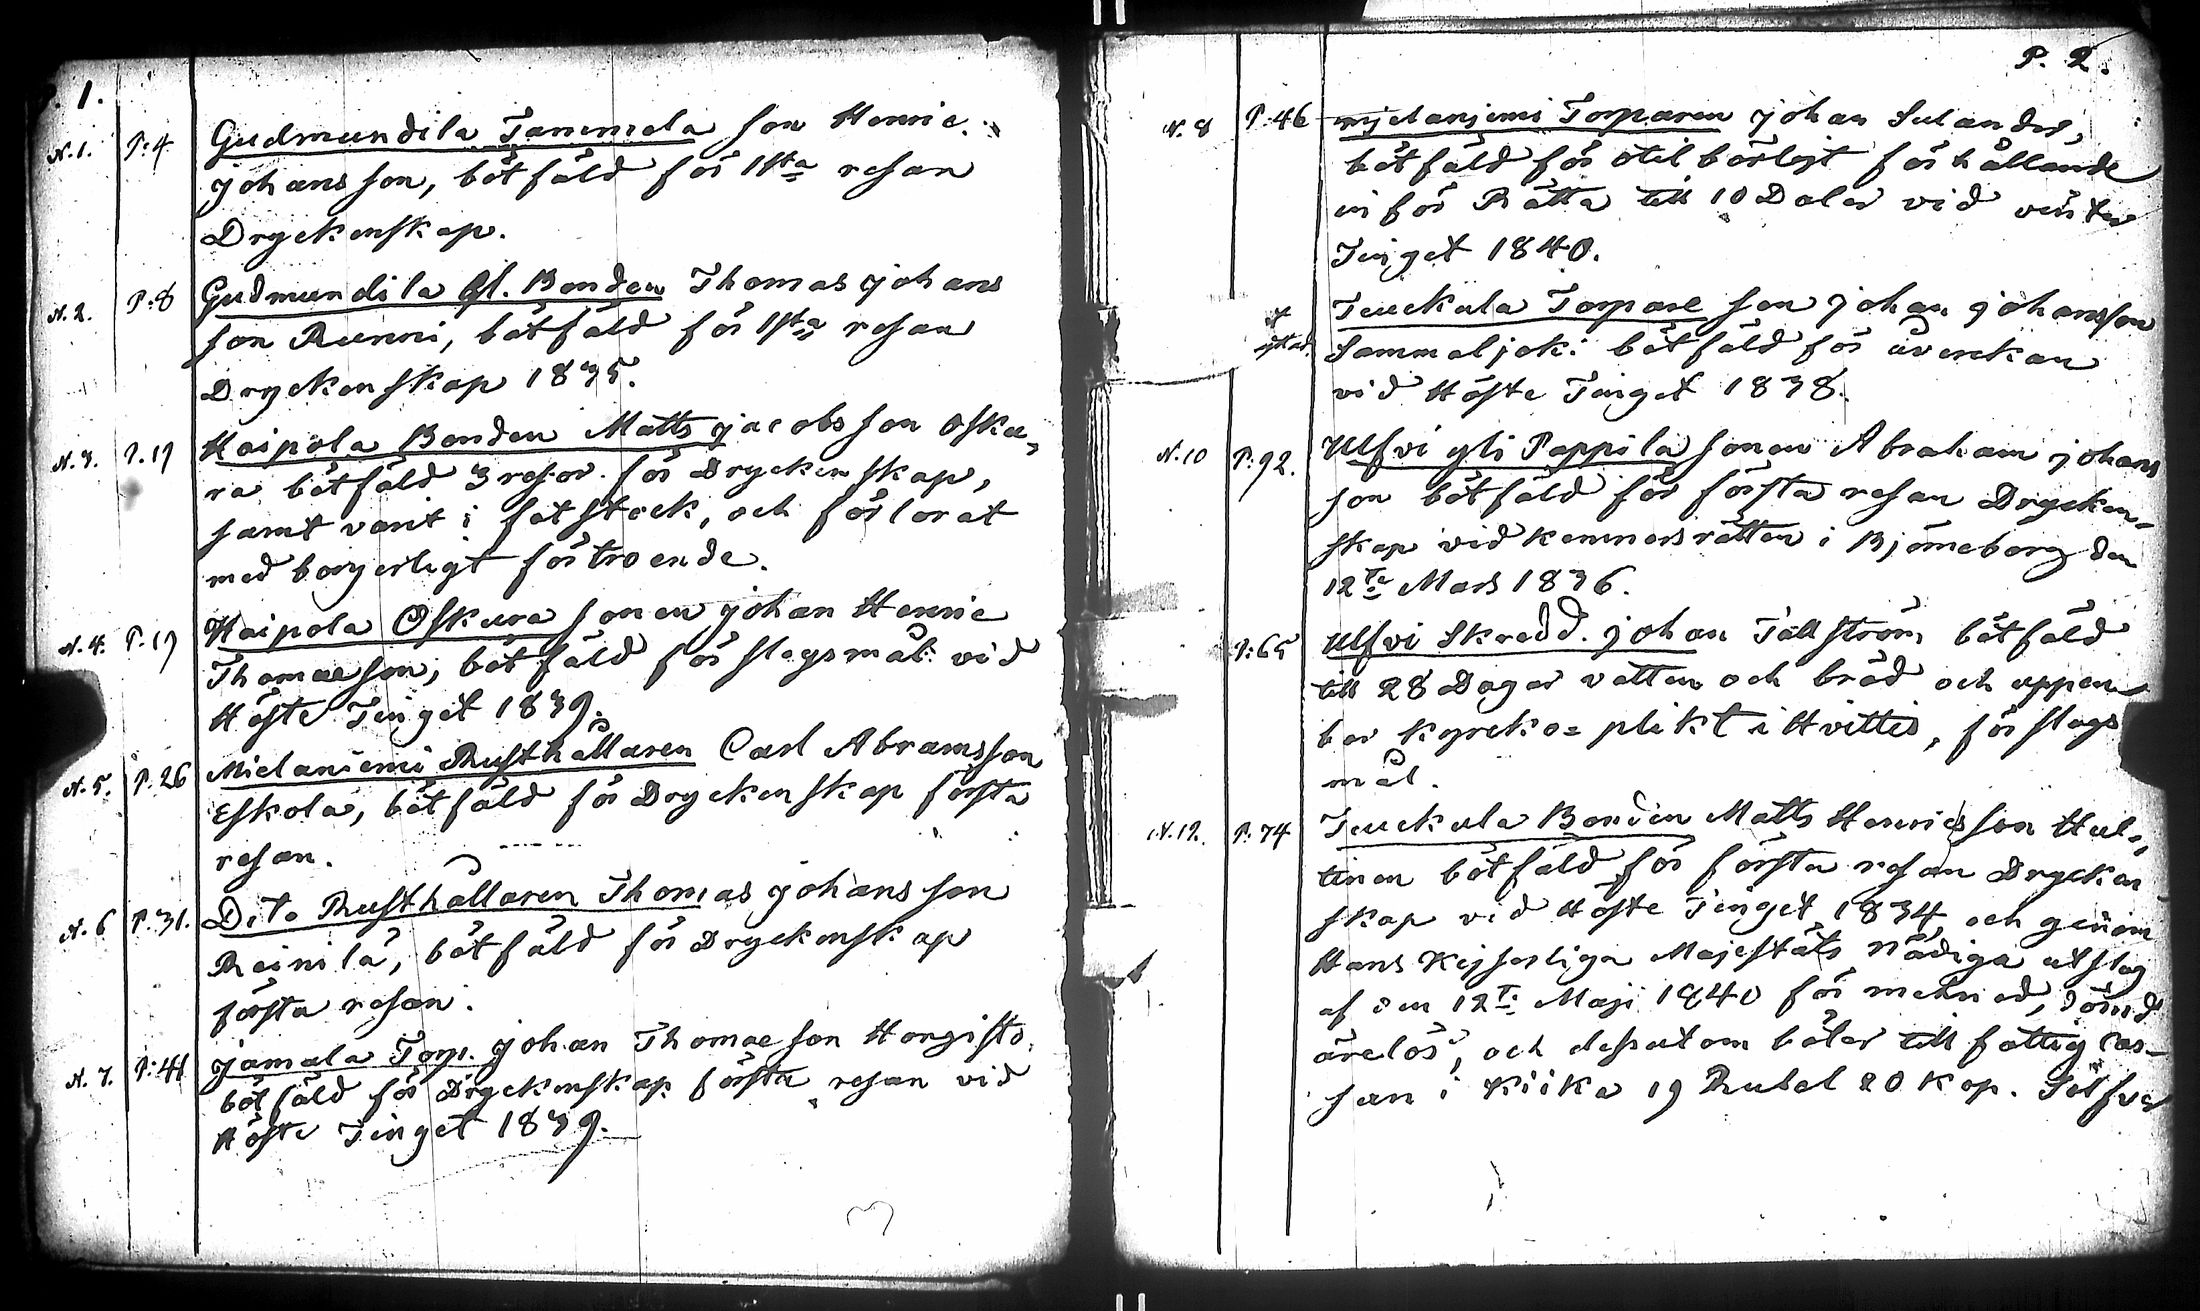 P. 1.
N. 1. P: 4 Gudmundila Tammela son Henric
johansson, bötfäld för 1sta resan
Dryckenskap.
N. 2. P: 8 Gudmundila Gl. Bonden Thomas johans
son Runni, bötfäld för 1sta resan
Dryckenskap 1835.
N. 3. P. 17 Haipola Bonden Matts jacobsson Osku-
ra bötfäld 3 resor för Dryckenskap,
samt varit i fotstock, och förlorat
med borgerligt förtroende.
N. 4. P. 17 Haipola Oskura sonen johan Henric
Thomaeson, bötfäld för slagsmål vid
Höste Tinget 1839.
N. 5. P. 26 Mielaniemi Rusthållaren Carl Abramsson
Eskola, bötfäld för Dryckenskap första
resan.
N. 6 P. 31. Dito Rusthållaren Thomas johansson
Reinilä, bötfäld för Dryckenskap
första resan.
N. 7. P: 41 jamala Torp. johan Thomaeson Horgisto,
bötfäld för Dryckenskap första resan vid
Höste Tinget 1839.
P. 2.
N. 8 P. 46 mjelanjemi Torparen johan Sulander,
bötfäld för otilbörligt förhållande
inför Rätta till 10 Daler vid vinter
Tinget 1840.
Teuckula Torpare son johan johansson
Sammaljoki bötfäld för åverckan
vid Höste Tinget 1838.
N. 10 P: 92. Ulfvi gli Pappila sonen Abraham johans
son bötfäld för första resan Drycken-
skap vid kemnersrätten i Björneborg den
12te Mars 1836.
P: 65 Ulfvi Skredd. johan Tällström bötfäld
till 28 Dagar vatten och bröd och uppen
bar kyrcko= plikt i Hvittis, för slags
mål.
N. 12. P. 74 Teuckula Bonden Matts Henricsson Hul-
tinen bötfäld för första resan Drycken
skap vid Höste Tinget 1834, och genom
Hans Kejserliga Majestäts Nådiga utslag
af den 12te Maji 1840 för mehned, dömd
ärelös, och dessutom böter till fattig Cas-
san i Kiika 19 Rubel 20 Kop. Silfver